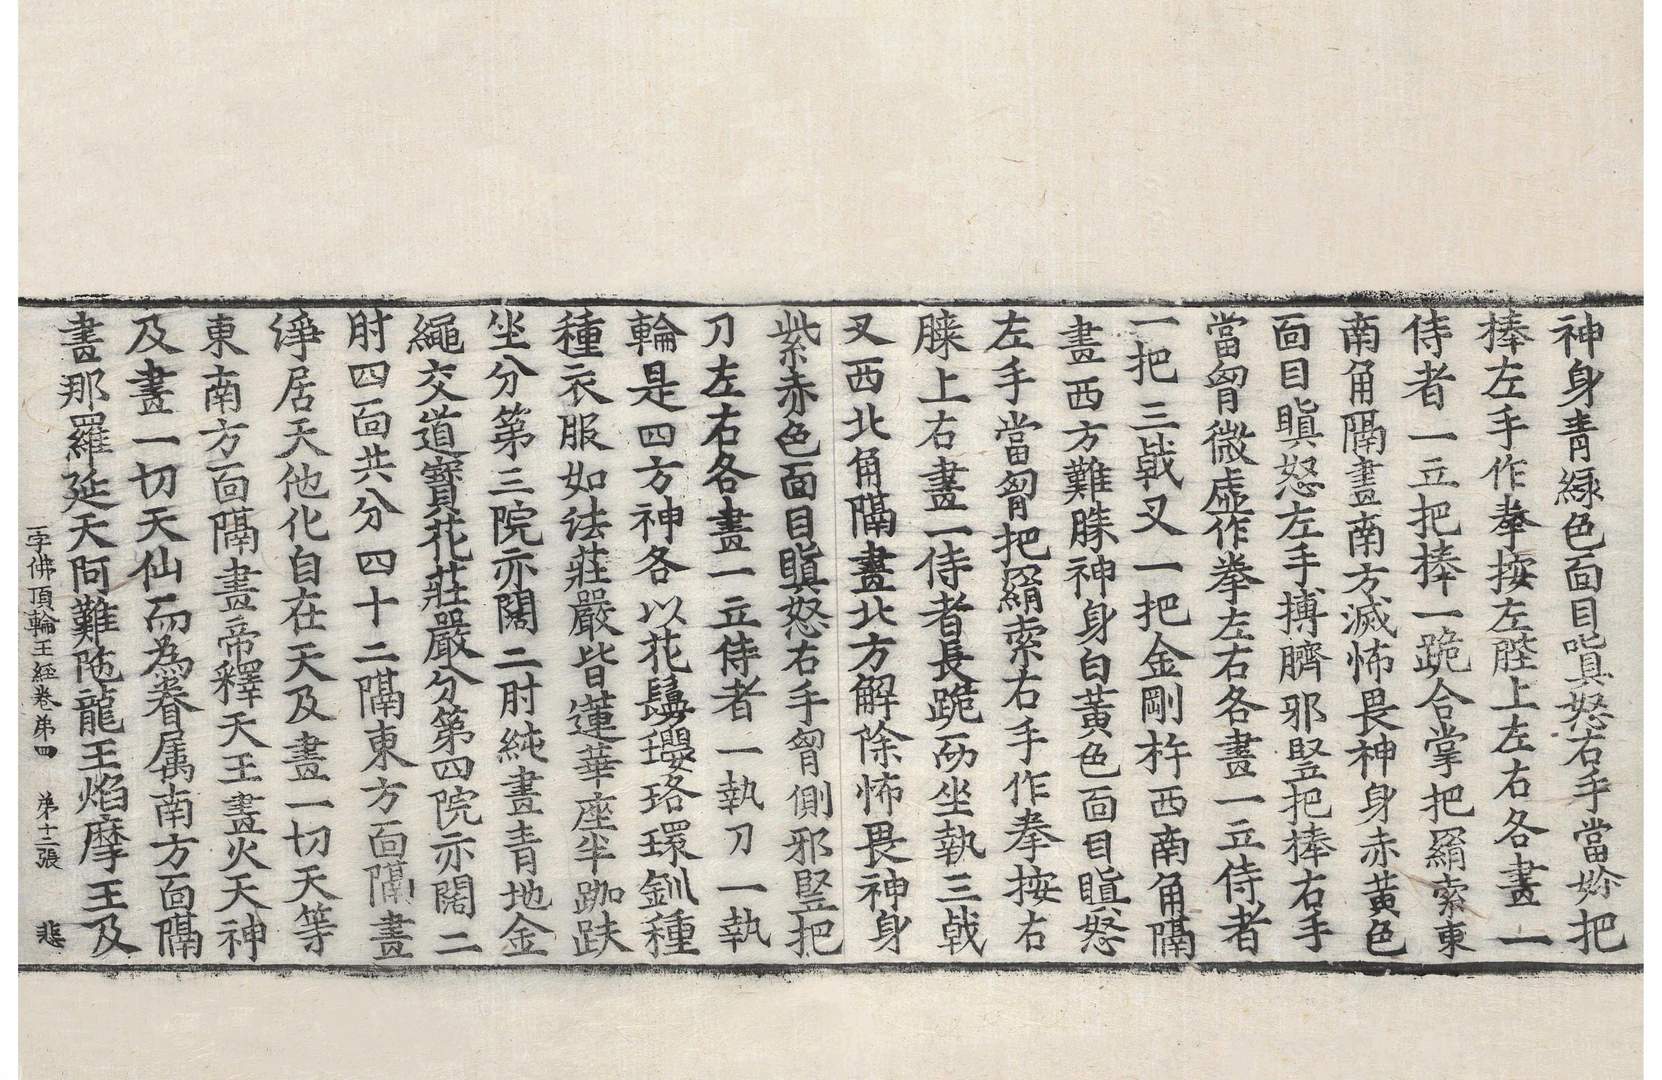 神身青綠色面目嗔怒右手當妳把
棒左手作拳按左䏶上左右各畫一
侍者一立把棒一跪合掌把羂索東
南角隔畫南方滅怖畏神身赤黃色
面目瞋怒左手搏臍邪竪把棒右手
當胷微虛作拳左右各畫一立侍者
一把三戟叉一把金剛杵西南角隔
畫西方難勝神身白黃色面目瞋怒
左手當胷把羂索右手作拳按右
膝上右畫一侍者長跪而坐執三戟
叉西北角隔畫北方解除怖畏神身
紫赤色面目瞋怒右手胷側邪竪把
刀左右各畫一立侍者一執刀一執
輪是四方神各以花鬘瓔珞環釧種
種衣服如法莊嚴皆蓮華座半跏趺
坐分第三院亦闊二肘純畫青地金
繩交道寶花莊嚴分第四院亦闊二
肘四面共分四十二隔東方面隔畫
淨居天他化自在天及畫一切天等
東南方面隔畫帝釋天王畫火天神
及畫一切天仙而為眷属南方面隔
畫那羅延天阿難陁龍王焰摩王及
一字佛頂輪王經卷第四 第十二張 悲